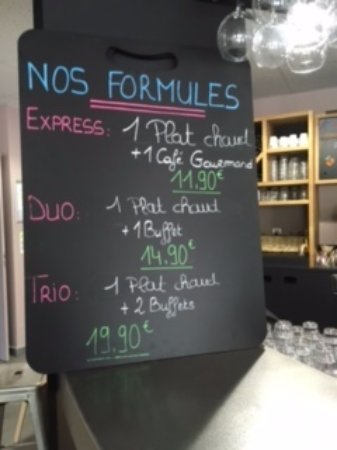 NOS FORMULES
EXPRESS: 1 Plat chaud
+1 Café Gourmand
11.90€
DUO: 1 Plat chaud
+1 Buffet
14.90€
TRIO: 1 Plat chaud
+2 Buffets
19.90€